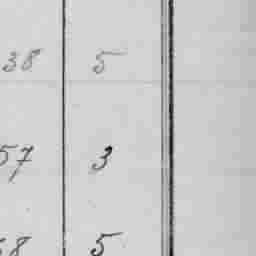 38 5
57 3
58 5